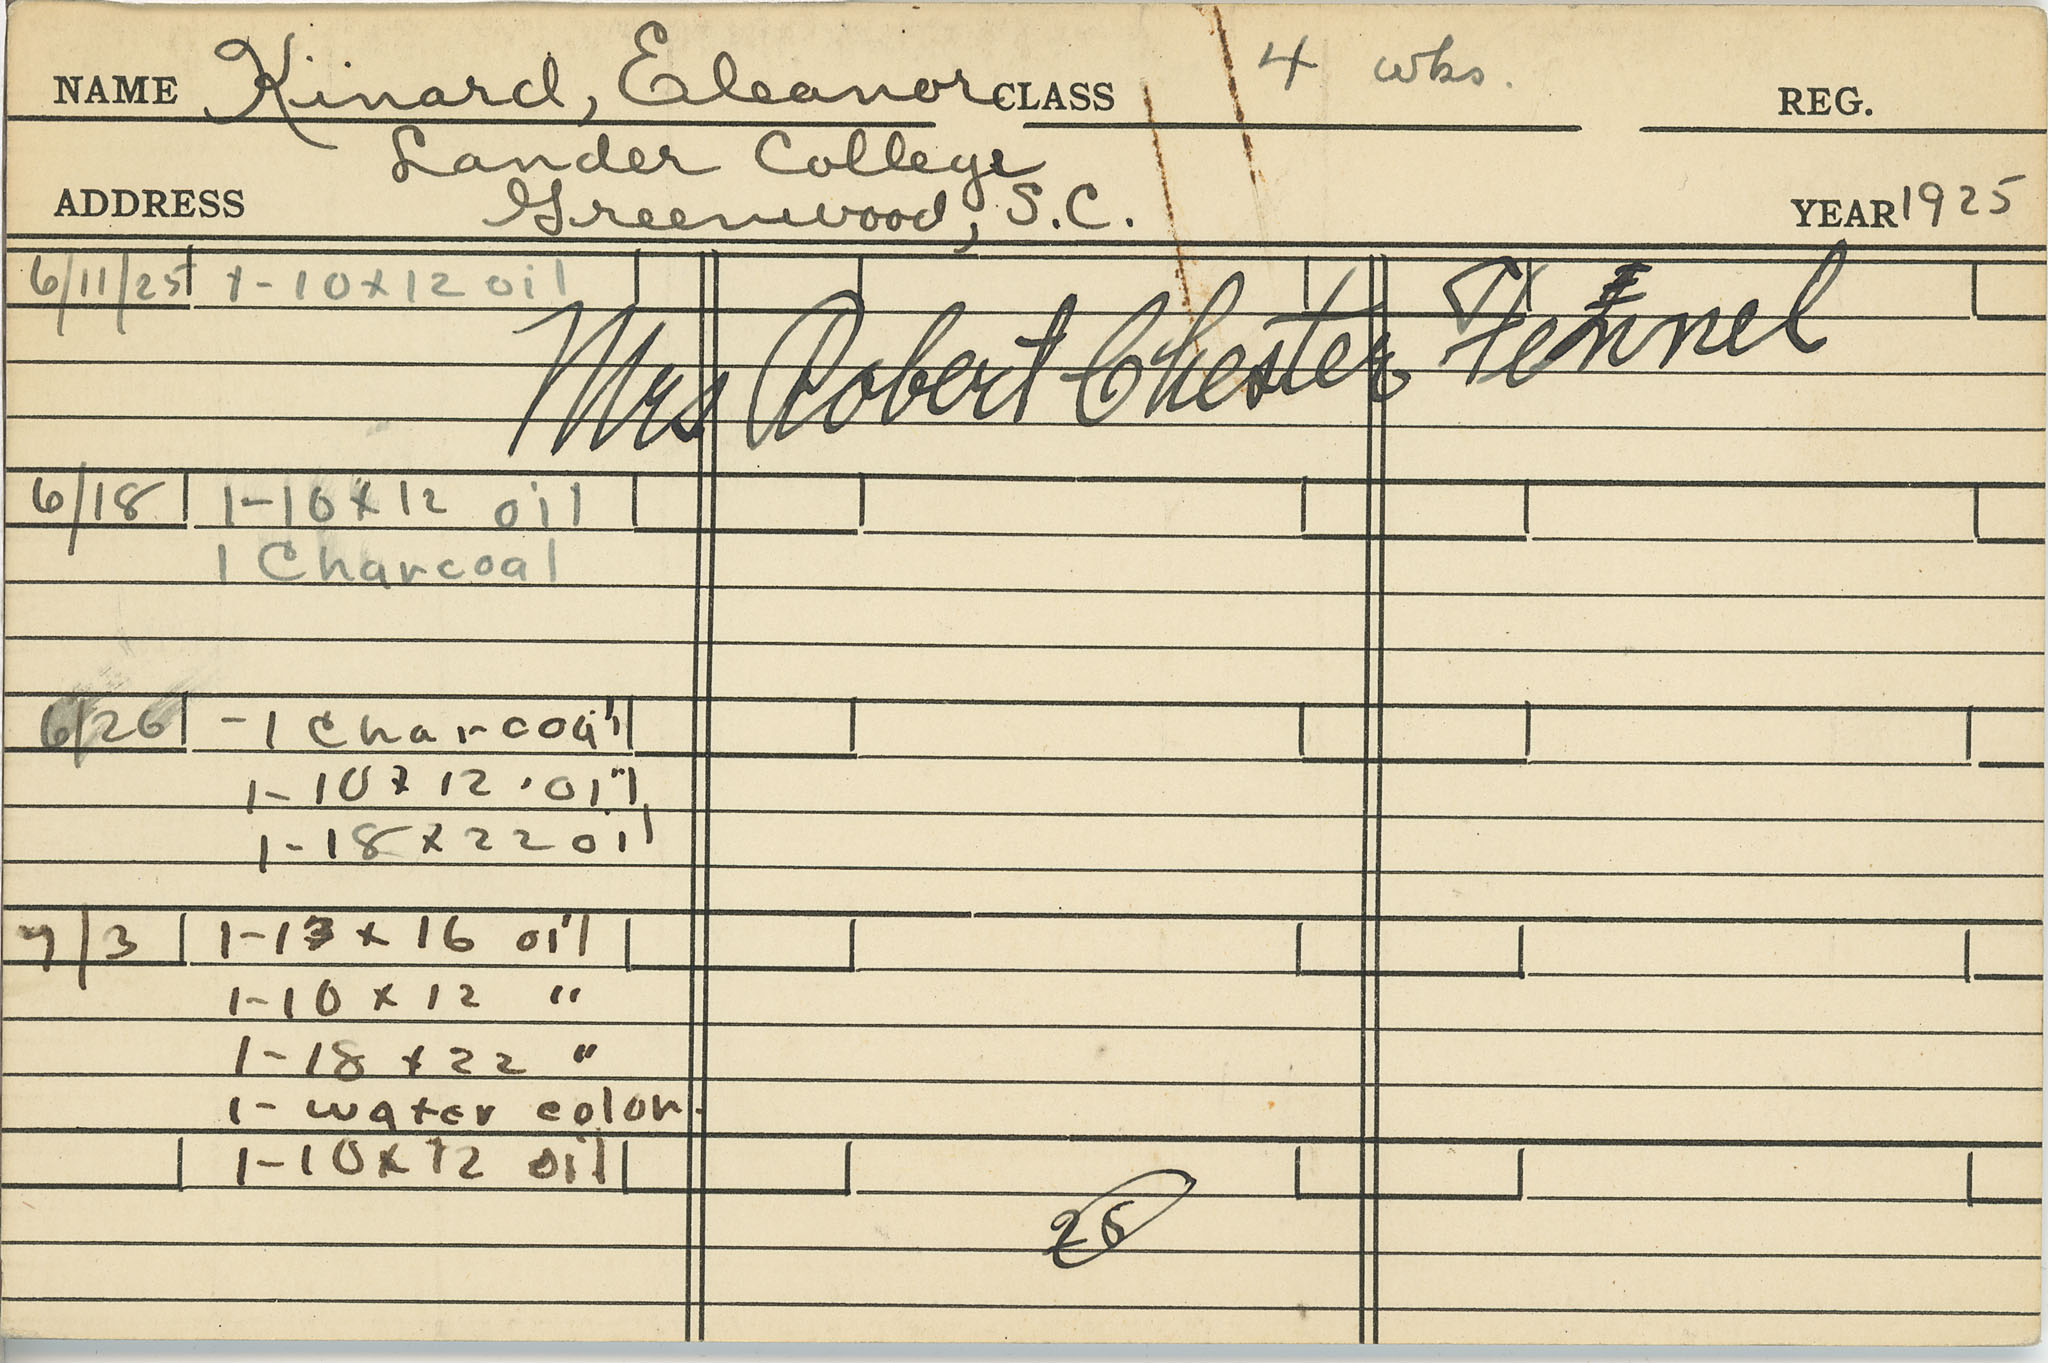 NAME Kinard, Eleanor CLASS 4 wks. REG.
Lander College
ADDRESS Greenwood, S.C. YEAR 1925
6/11/25 1-10x12 oil
Mrs Robert Chester Fennel
6/18 1-10x12 oil
1 Charcoal
6/26 -1 Charcoal
1-10x12 oil
1-18x22 oil
7/3 1-13x16 oil
1-10x12 "
1-18x22 "
1- water color.
1-10x12 oil